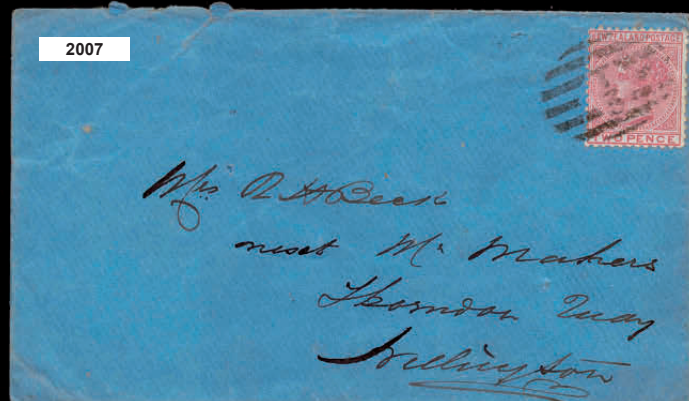 2007
NEW ZEALAND POSTAGE
TWO PENCE
Mrs R H Beck
next Mr Mahers
Thorndon Quay
Wellington